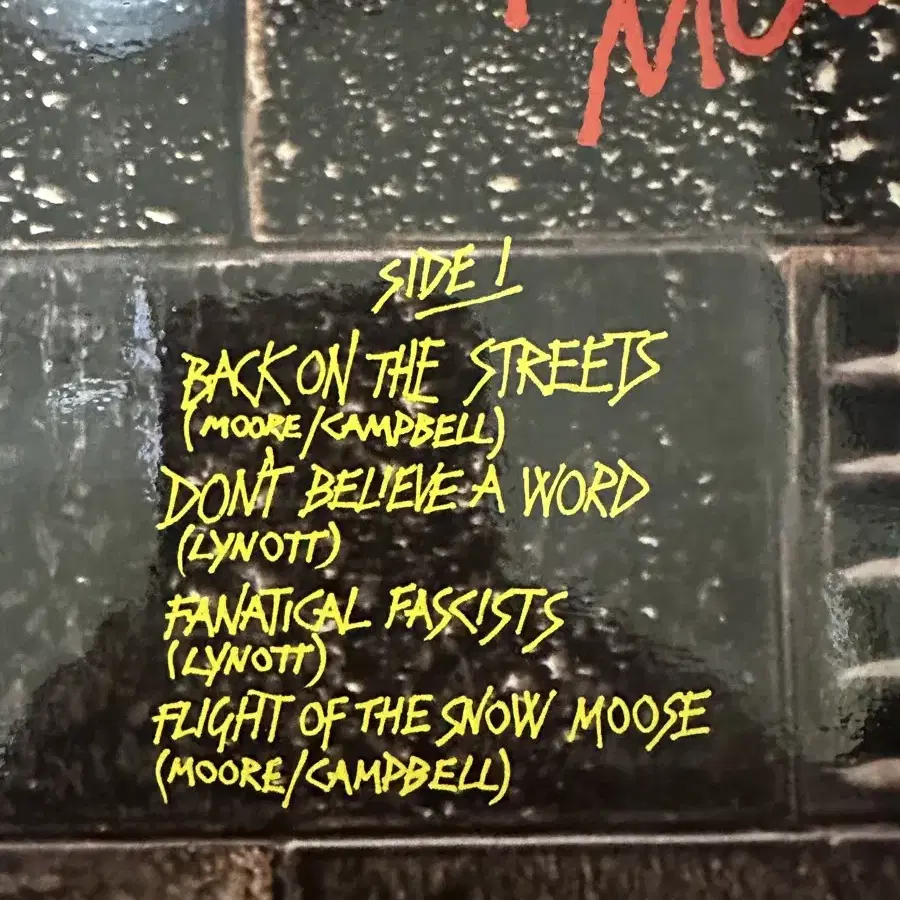 SIDE 1
BACK ON THE STREETS
(MOORE/CAMPBELL)
DON'T BELIEVE A WORD
(LYNOTT)
FANATICAL FASCISTS
(LYNOTT)
FLIGHT OF THE SNOW MOOSE
(MOORE/CAMPBELL)